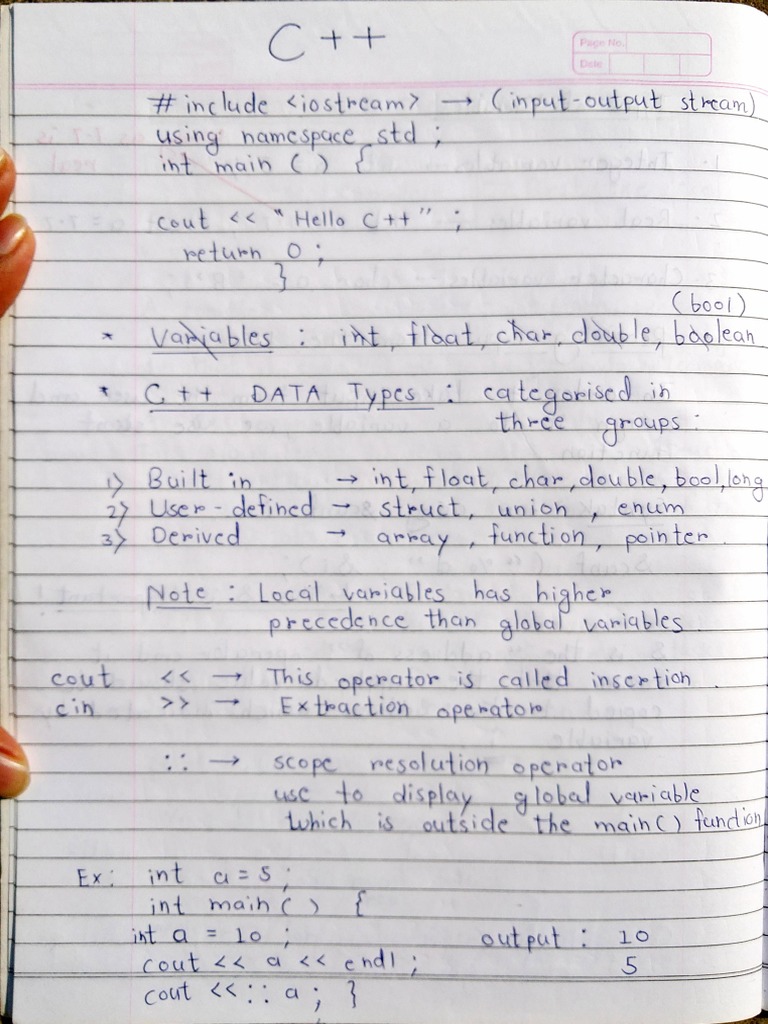 C++
Page No.
Date
# include <iostream> → (input-output stream)
using namespace std ;
int main ( ) {
cout << "Hello C++" ;
return 0 ;
}
(bool)
* Variables : int, float, char, double, boolean
* C++ DATA Types : categorised in
three groups :
1) Built in → int, float, char, double, bool, long
2) User-defined → struct, union , enum
3) Derived → array , function , pointer .
Note : Local variables has higher
precedence than global variables .
cout << → This operator is called insertion .
cin >> → Extraction operator
:: → scope resolution operator
use to display global variable
which is outside the main() function
Ex: int a = 5 ;
int main ( ) {
int a = 10 ; output : 10
cout << a << endl ; 5
cout << :: a ; }